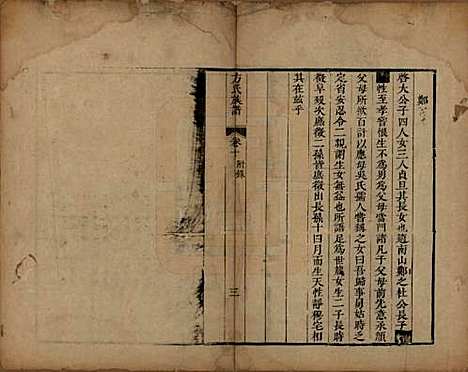 啓大公子四人女三人貞旦其長女也適南山鄭之杜公長子
性至孝嘗恨生不爲男爲父母當門諸凡子父母前先意承顏
父母所欲百計以應母吳氏孺人嘗稱之女曰吾歸事舅姑時之
定省安忍令二親謝生女無益也所語足爲世箴女生二子長時
徵早歿次應徵二孫皆應徵出長孫十四月而生天性靜穆宅相
其在茲乎
方氏族譜
卷十
附錄
三